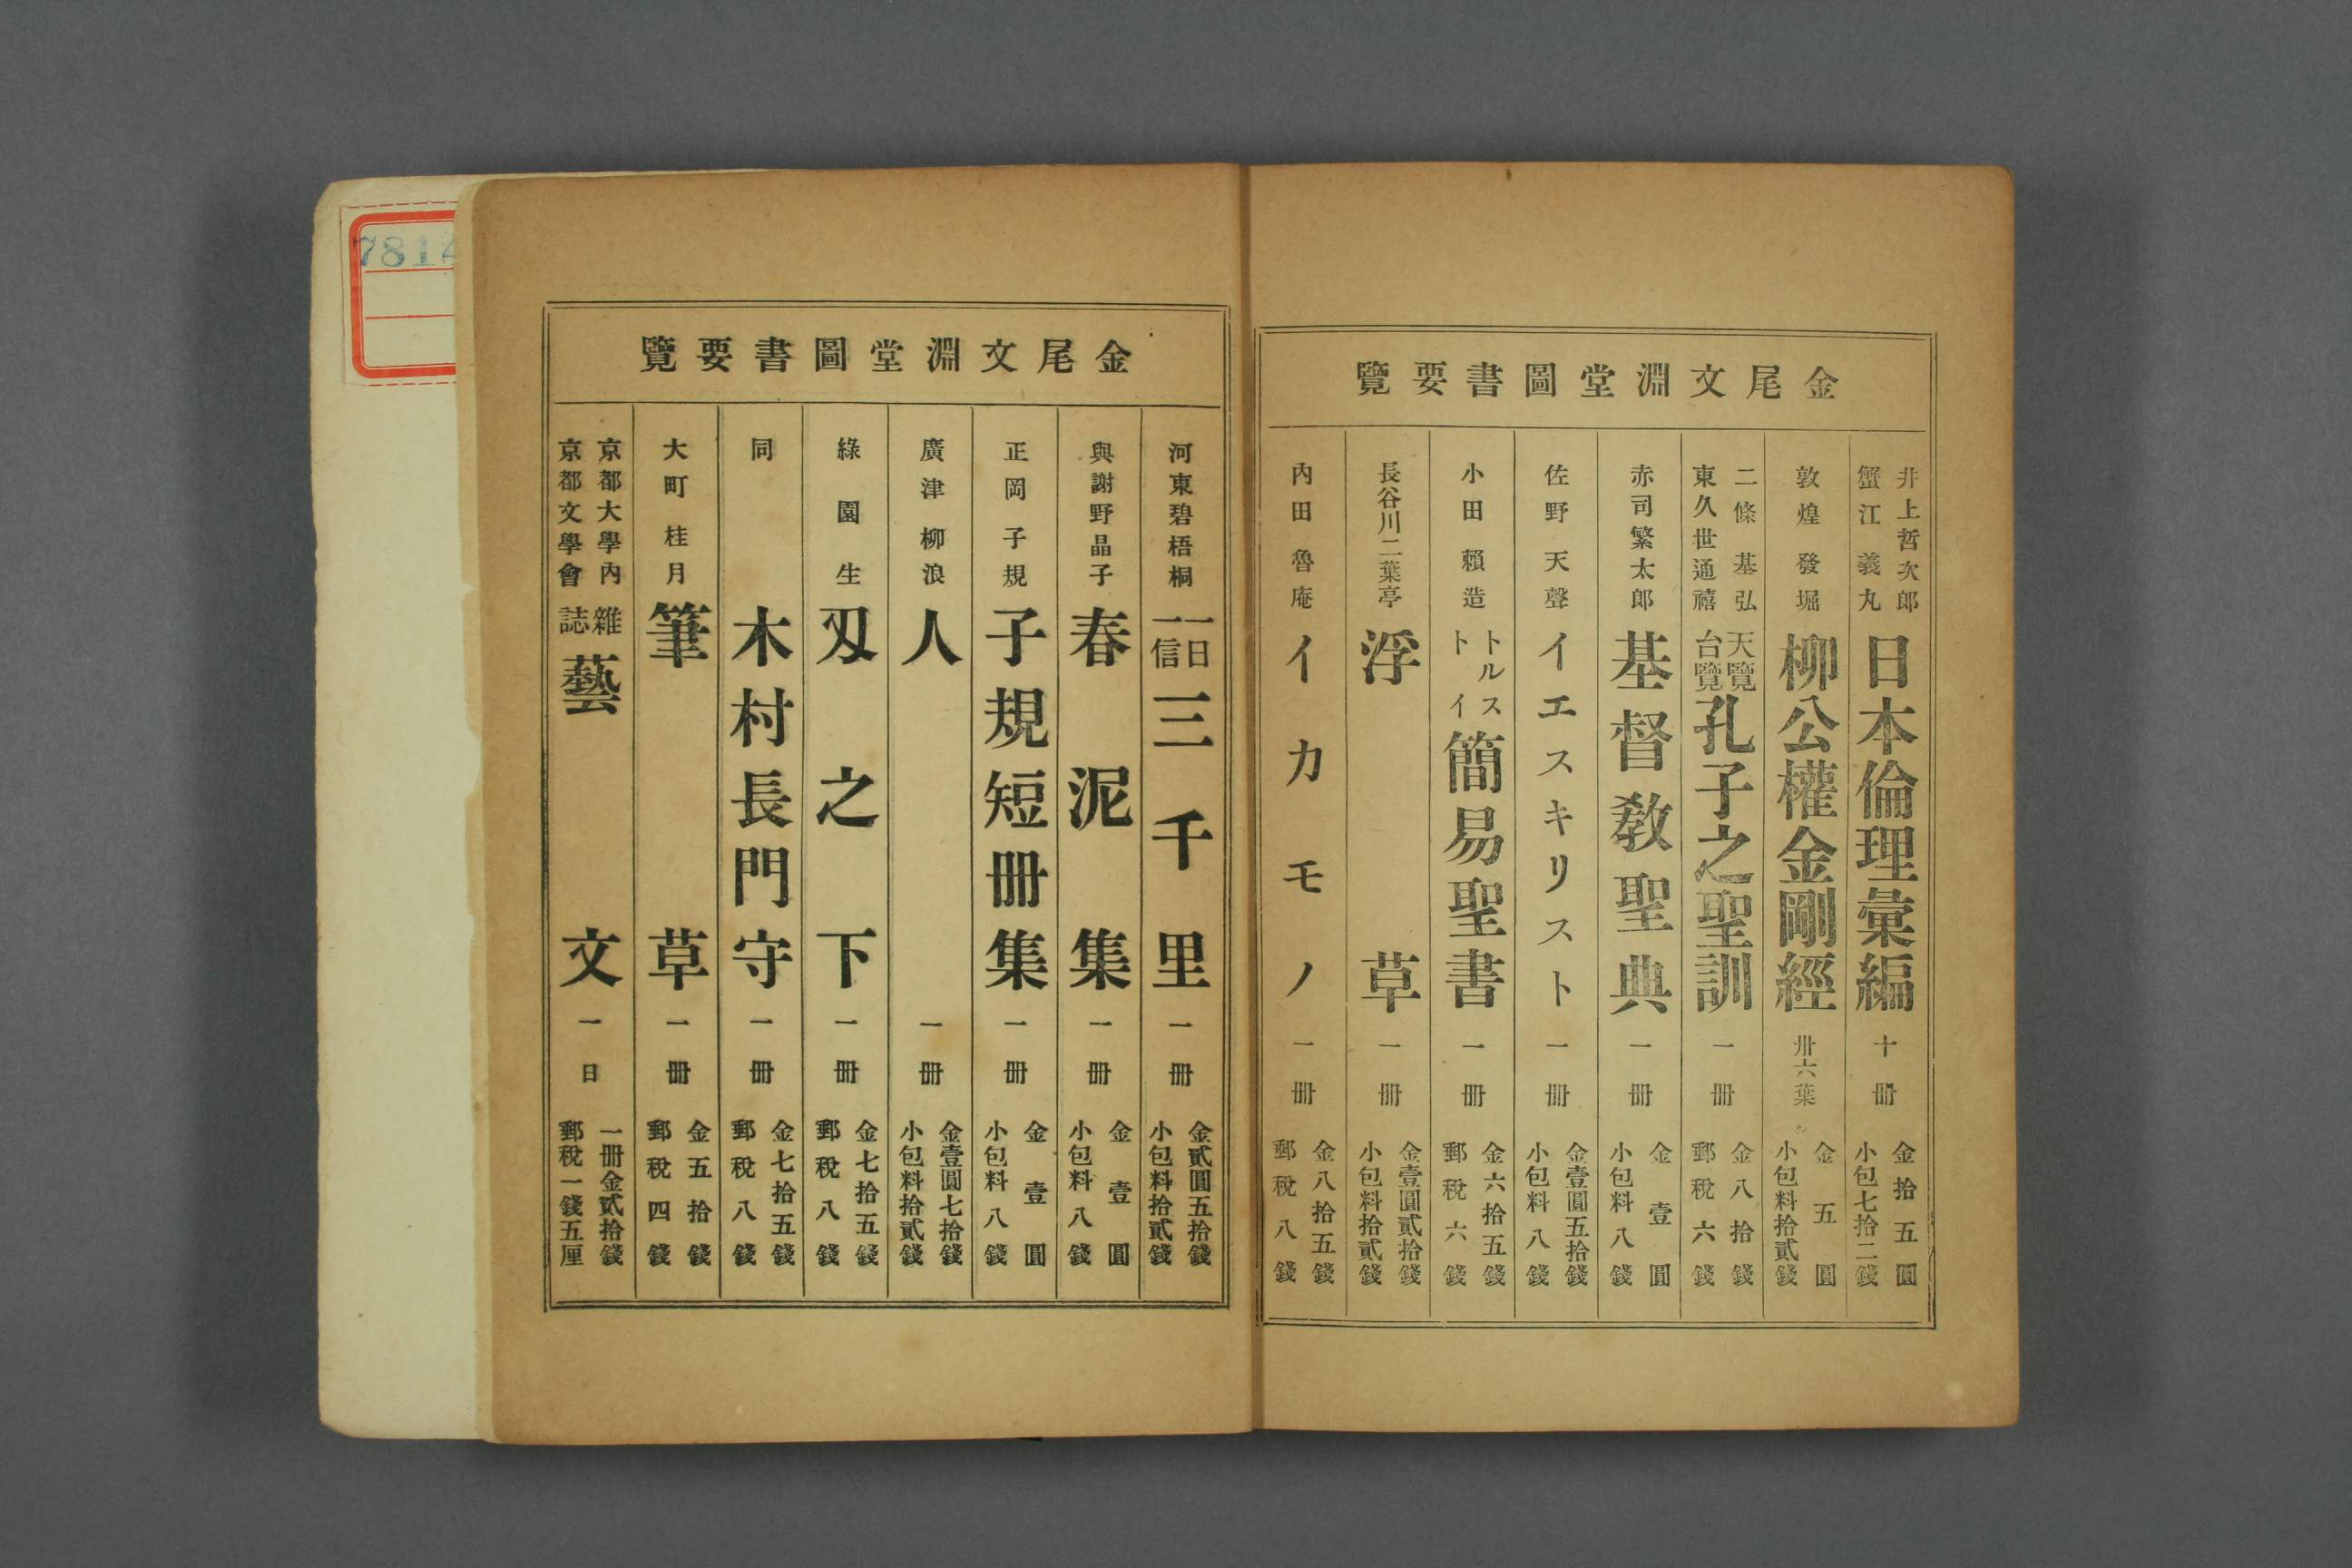 金尾文淵堂圖書要覽
井上哲次郎
蟹江義丸
日本倫理彙編
十册
金拾五圓
小包七拾二錢
敦煌發堀
柳公權金剛經
卅六葉
金五圓
小包料拾貳錢
二條基弘
東久世通禧
天覽
台覽
孔子之聖訓
一册
金八拾錢
郵稅六錢
赤司繁太郎
基督教聖典
一册
金壹圓
小包料八錢
佐野天聲
イエスキリスト
一册
金壹圓五拾錢
小包料八錢
小田賴造
トルス
トイ
簡易聖書
一册
金六拾五錢
郵稅六錢
長谷川二葉亭
浮草
一册
金壹圓貳拾錢
小包料拾貳錢
內田魯庵
イカモノ
一册
金八拾五錢
郵稅八錢
金尾文淵堂圖書要覽
河東碧梧桐
一日
一信
三千里
一册
金貳圓五拾錢
小包料拾貳錢
與謝野晶子
春泥集
一册
金壹圓
小包料八錢
正岡子規
子規短冊集
一册
金壹圓
小包料八錢
廣津柳浪
人
一册
金壹圓七拾錢
小包料拾貳錢
綠園生
刄之下
一册
金七拾五錢
郵稅八錢
同
木村長門守
一册
金七拾五錢
郵稅八錢
大町桂月
筆草
一册
金五拾錢
郵稅四錢
京都大學內
京都文學會
雜
誌
藝文
一日
一册金貳拾錢
郵稅一錢五厘
7814